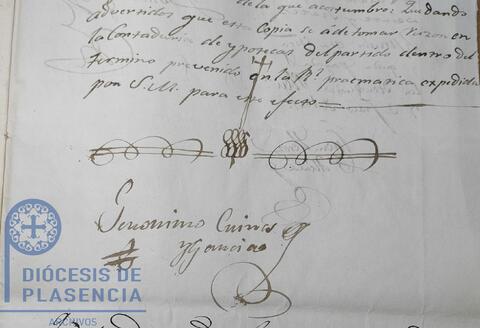 de la que acostumbro: Quedando
advertidos que esta Copia se a de tomar Razon en
la Contaduria de ypotecas del partido dentro del
termino prevenido en la Rl. pracmatica expedida
por S.M. para este efecto
Geronimo
y Garcia
DIÓCESIS DE
PLASENCIA
ARCHIVOS